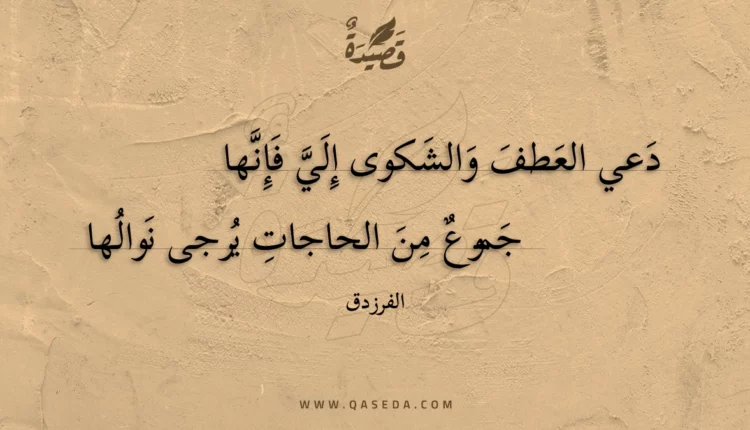 قَصِيدَةٌ
دَعي العَطفَ وَالشَكوى إِلَيَّ فَإِنَّها
جَموعٌ مِنَ الحاجاتِ يُرجى نَوالُها
الفرزدق
WWW.QASEDA.COM